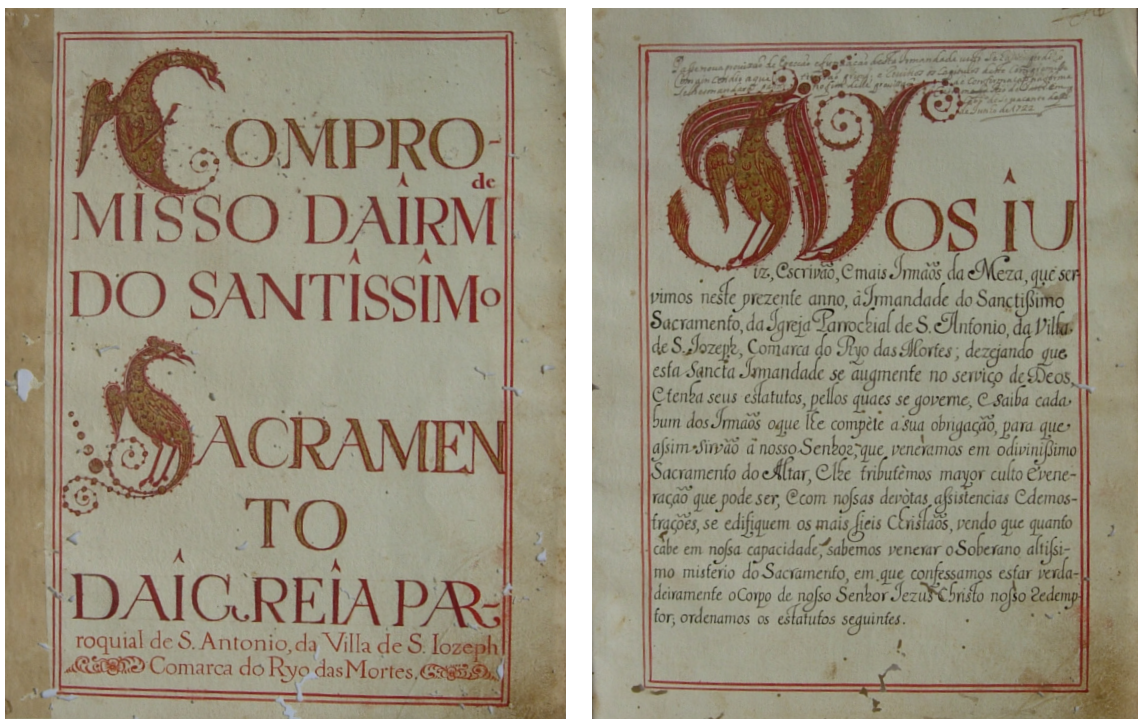 COMPRO-
MISSO DA IRMde
DO SANTISSIMo
SACRAMEN
TO
DA IGREIA PAR-
roquial de S. Antonio, da Villa de S. Iozeph
Comarca do Ryo das Mortes.
de Junio de 1722
NOS IU
iz, Escrivão, E mais Irmãos da Meza, que ser-
vimos neste prezente anno, à Irmandade do Sanctissimo
Sacramento, da Igreja Parrochial de S. Antonio, da Villa
de S. Iozeph, Comarca do Ryo das Mortes; dezejando que
esta Sancta Irmandade se augmente no serviço de Deos,
E tenha seus estatutos, pellos quaes se governe, E saiba cada
hum dos Irmãos o que lhe compète a sua obrigação, para que
assim sirvão a nosso Senhor, que venèramos em o divinissimo
Sacramento do Altar, E lhe tributèmos mayor culto E vene-
ração que pode ser, E com nossas devòtas assistencias E demos-
trações, se edifiquem os mais fieis Christaõs, vendo que quanto
cabe em nossa capacidade, sabemos venerar o Soberano altissi-
mo mistèrio do Sacramento, em que confessamos estar verda-
deiramente o Corpo de nosso Senhor Iezus Christo nosso Redemp-
tor; ordenamos os estatutos seguintes.